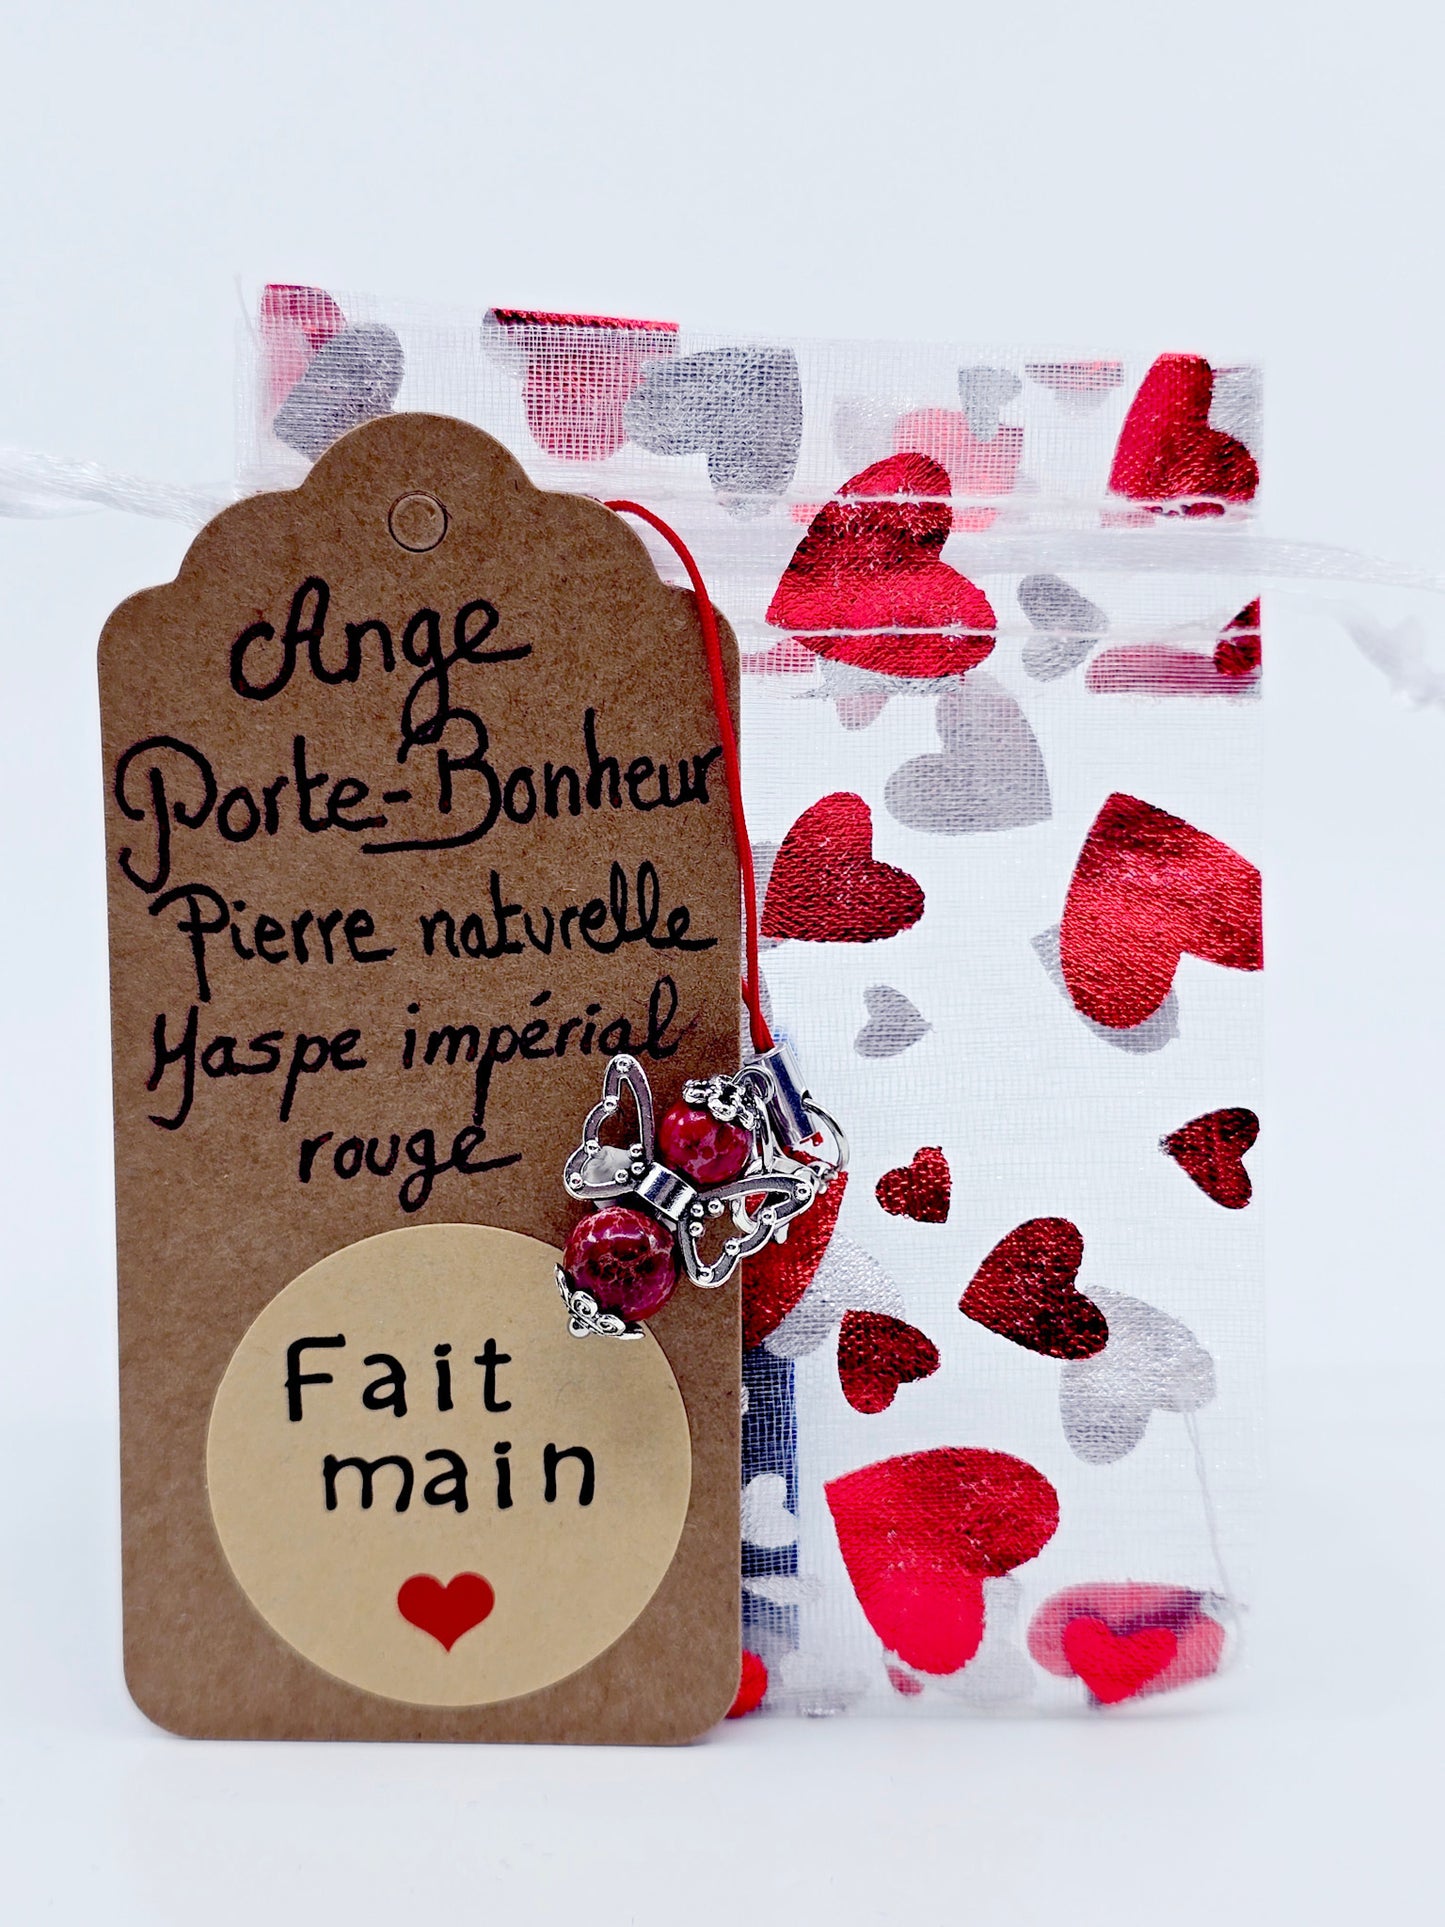 Ange
Porte-Bonheur
Pierre naturelle
Yaspe impérial
rouge
Fait
main